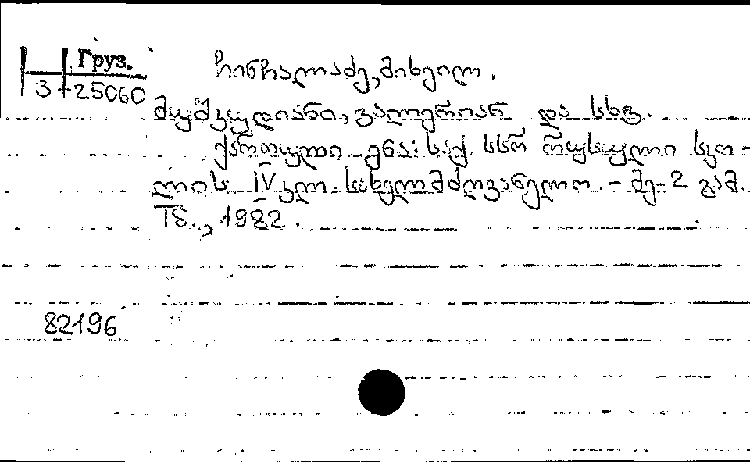 Груз.
3-25060
ჩინჩალაძე, მიხეილ.
მუშკუდიანი, ვალერიან და სხვ.
ქართული ენა: საქ. სსრ რუსული სკო-
ლის IV კლ. სახელმძღვანელო - მე-2 გამ.
Тб., 1982.
82196